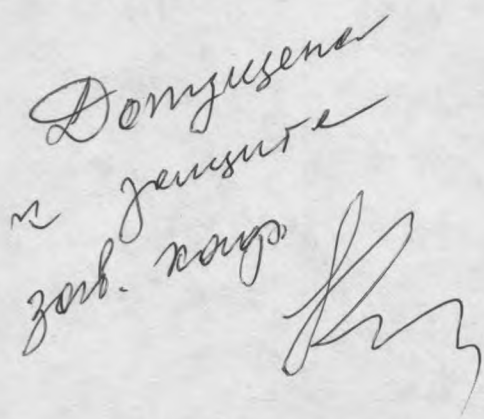 Допущена
к защите
зав. каф.